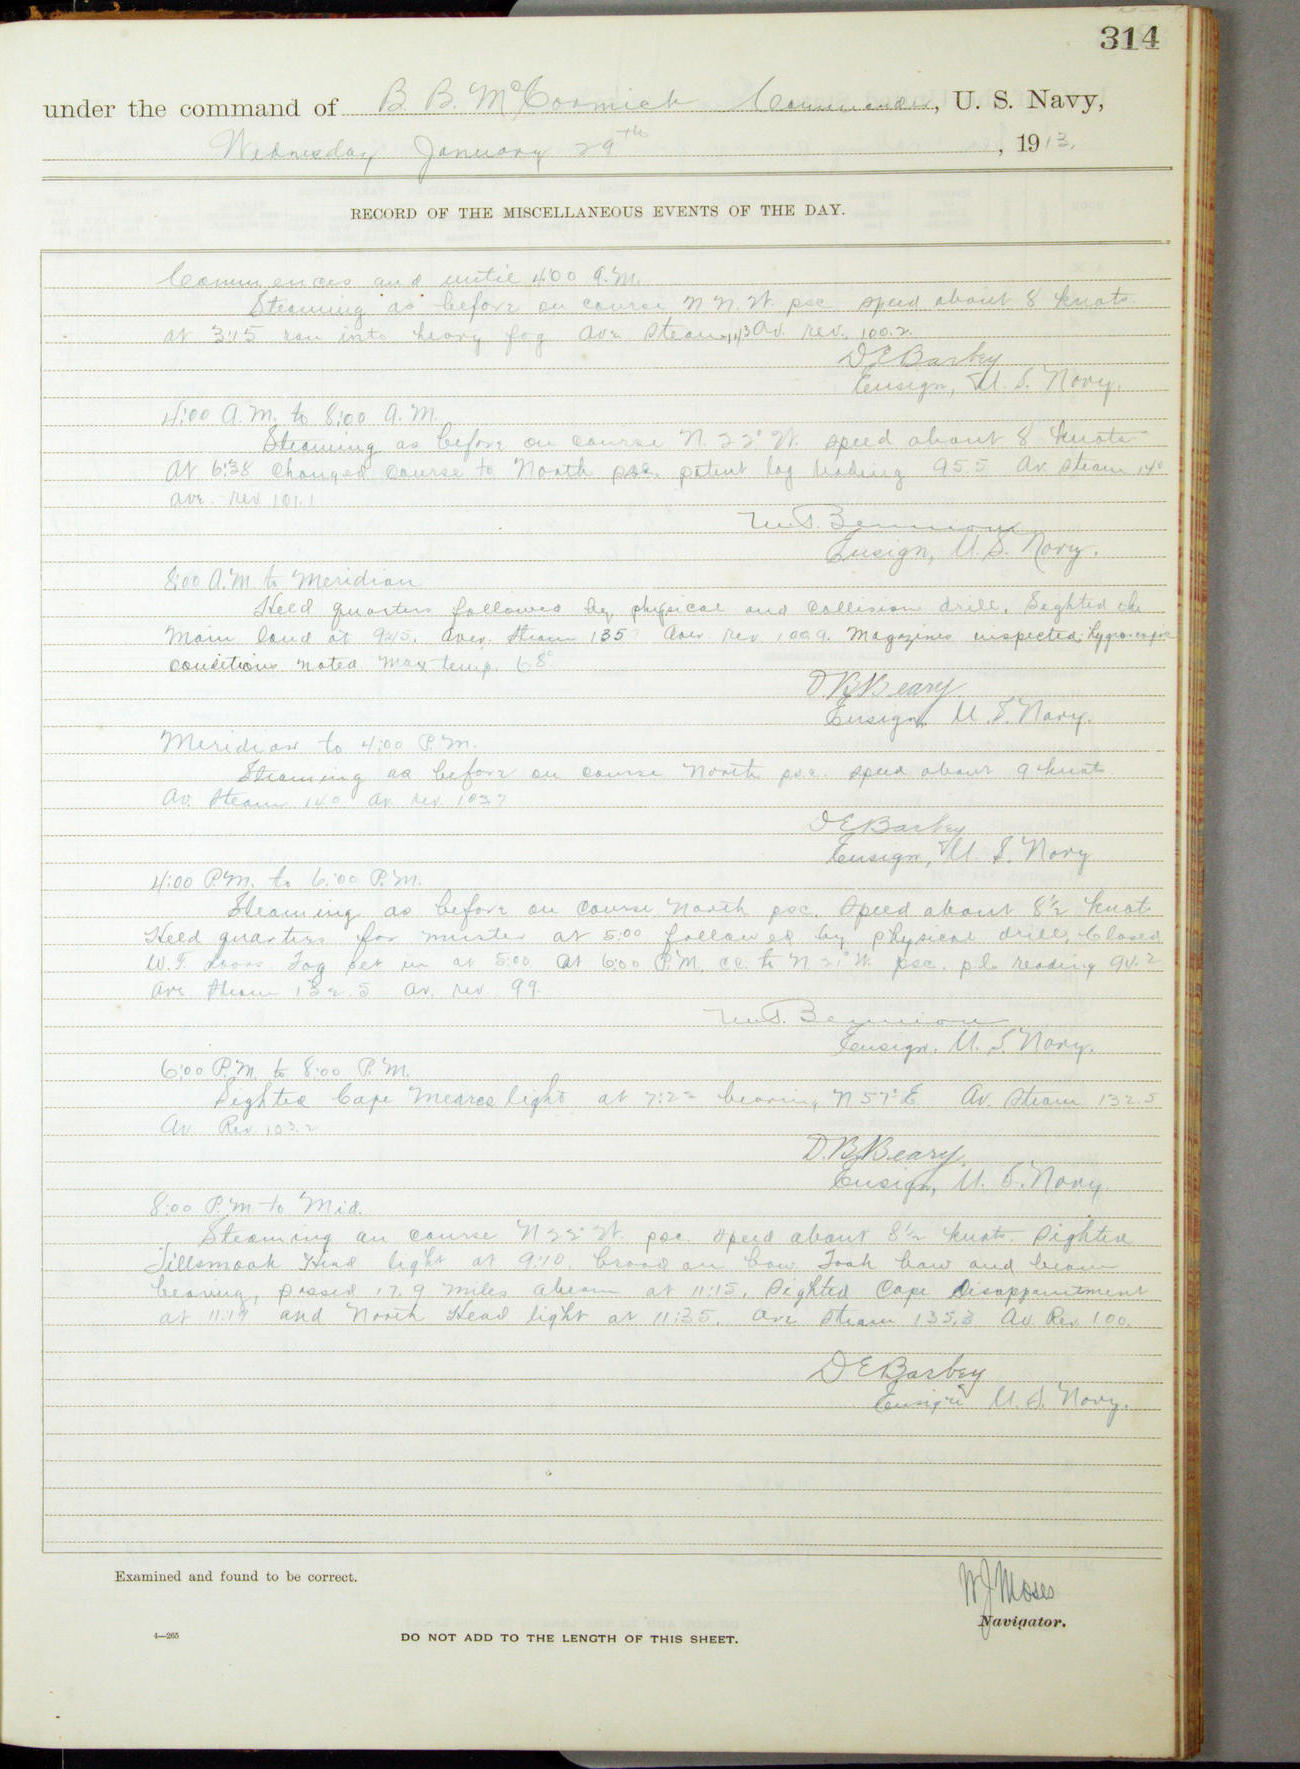 314
under the command of B. B. McCormick Commander, U. S. Navy,
Wednesday January 29th, 1913.
RECORD OF THE MISCELLANEOUS EVENTS OF THE DAY.
Commences and until 4:00 A.M.
Steaming as before on course N.N.W. psc. speed about 8 knots.
at 3:15 ran into heavy fog Ave. Steam 143 Av. rev. 100.2.
D E Barbey
Ensign, U. S. Navy.
4:00 A.M. to 8:00 A.M.
Steaming as before on course N. 22° W. speed about 8 knots
At 6:38 changed course to North psc. patent log reading 95.5 Av. steam 140
ave. rev 101.1
M.S. Bennion
Ensign, U.S. Navy.
8:00 A.M. to Meridian
Held quarters followed by physical and collision drill. Sighted the
Main land at 9:45. Aver. Steam 135 Aver rev 100.9. Magazines inspected,
conditions noted. Max temp. 68°
D.B. Beary
Ensign U.S. Navy.
Meridian to 4:00 P.M.
Steaming as before on course North psc. speed about 9 knots
Av. Steam 140 Av. rev 103.7
D E Barbey
Ensign, U. S. Navy
4:00 P.M. to 6:00 P.M.
Steaming as before on course North psc. Speed about 8½ knots
Held quarters for muster at 5:00 followed by physical drill. Closed
W.T. doors Fog set in at 5:00 At 6:00 P.M. cc. to N 21° W. psc. p.l. reading 94.2
Ave Steam 132.5 Av. rev. 99.
M.S. Bennion
Ensign. U. S. Navy.
6:00 P.M. to 8:00 P.M.
Sighted Cape Meares light at 7:22 bearing N 57° E Av. Steam 132.5
Av. Rev. 103.2
D.B. Beary
Ensign, U. S. Navy.
8:00 P.M. to Mid.
Steaming on course N 22° W. psc. speed about 8½ knots. Sighted
Tillamook Head light at 9:10. broad on bow. Took bow and beam
bearing, passed 17.9 miles abeam at 11:15. Sighted Cape Disappointment
at 11:19 and North Head light at 11:35. Ave Steam 135.3 Av Rev 100.
D E Barbey
Ensign U. S. Navy.
Examined and found to be correct.
W J Moses
Navigator.
4—265
DO NOT ADD TO THE LENGTH OF THIS SHEET.